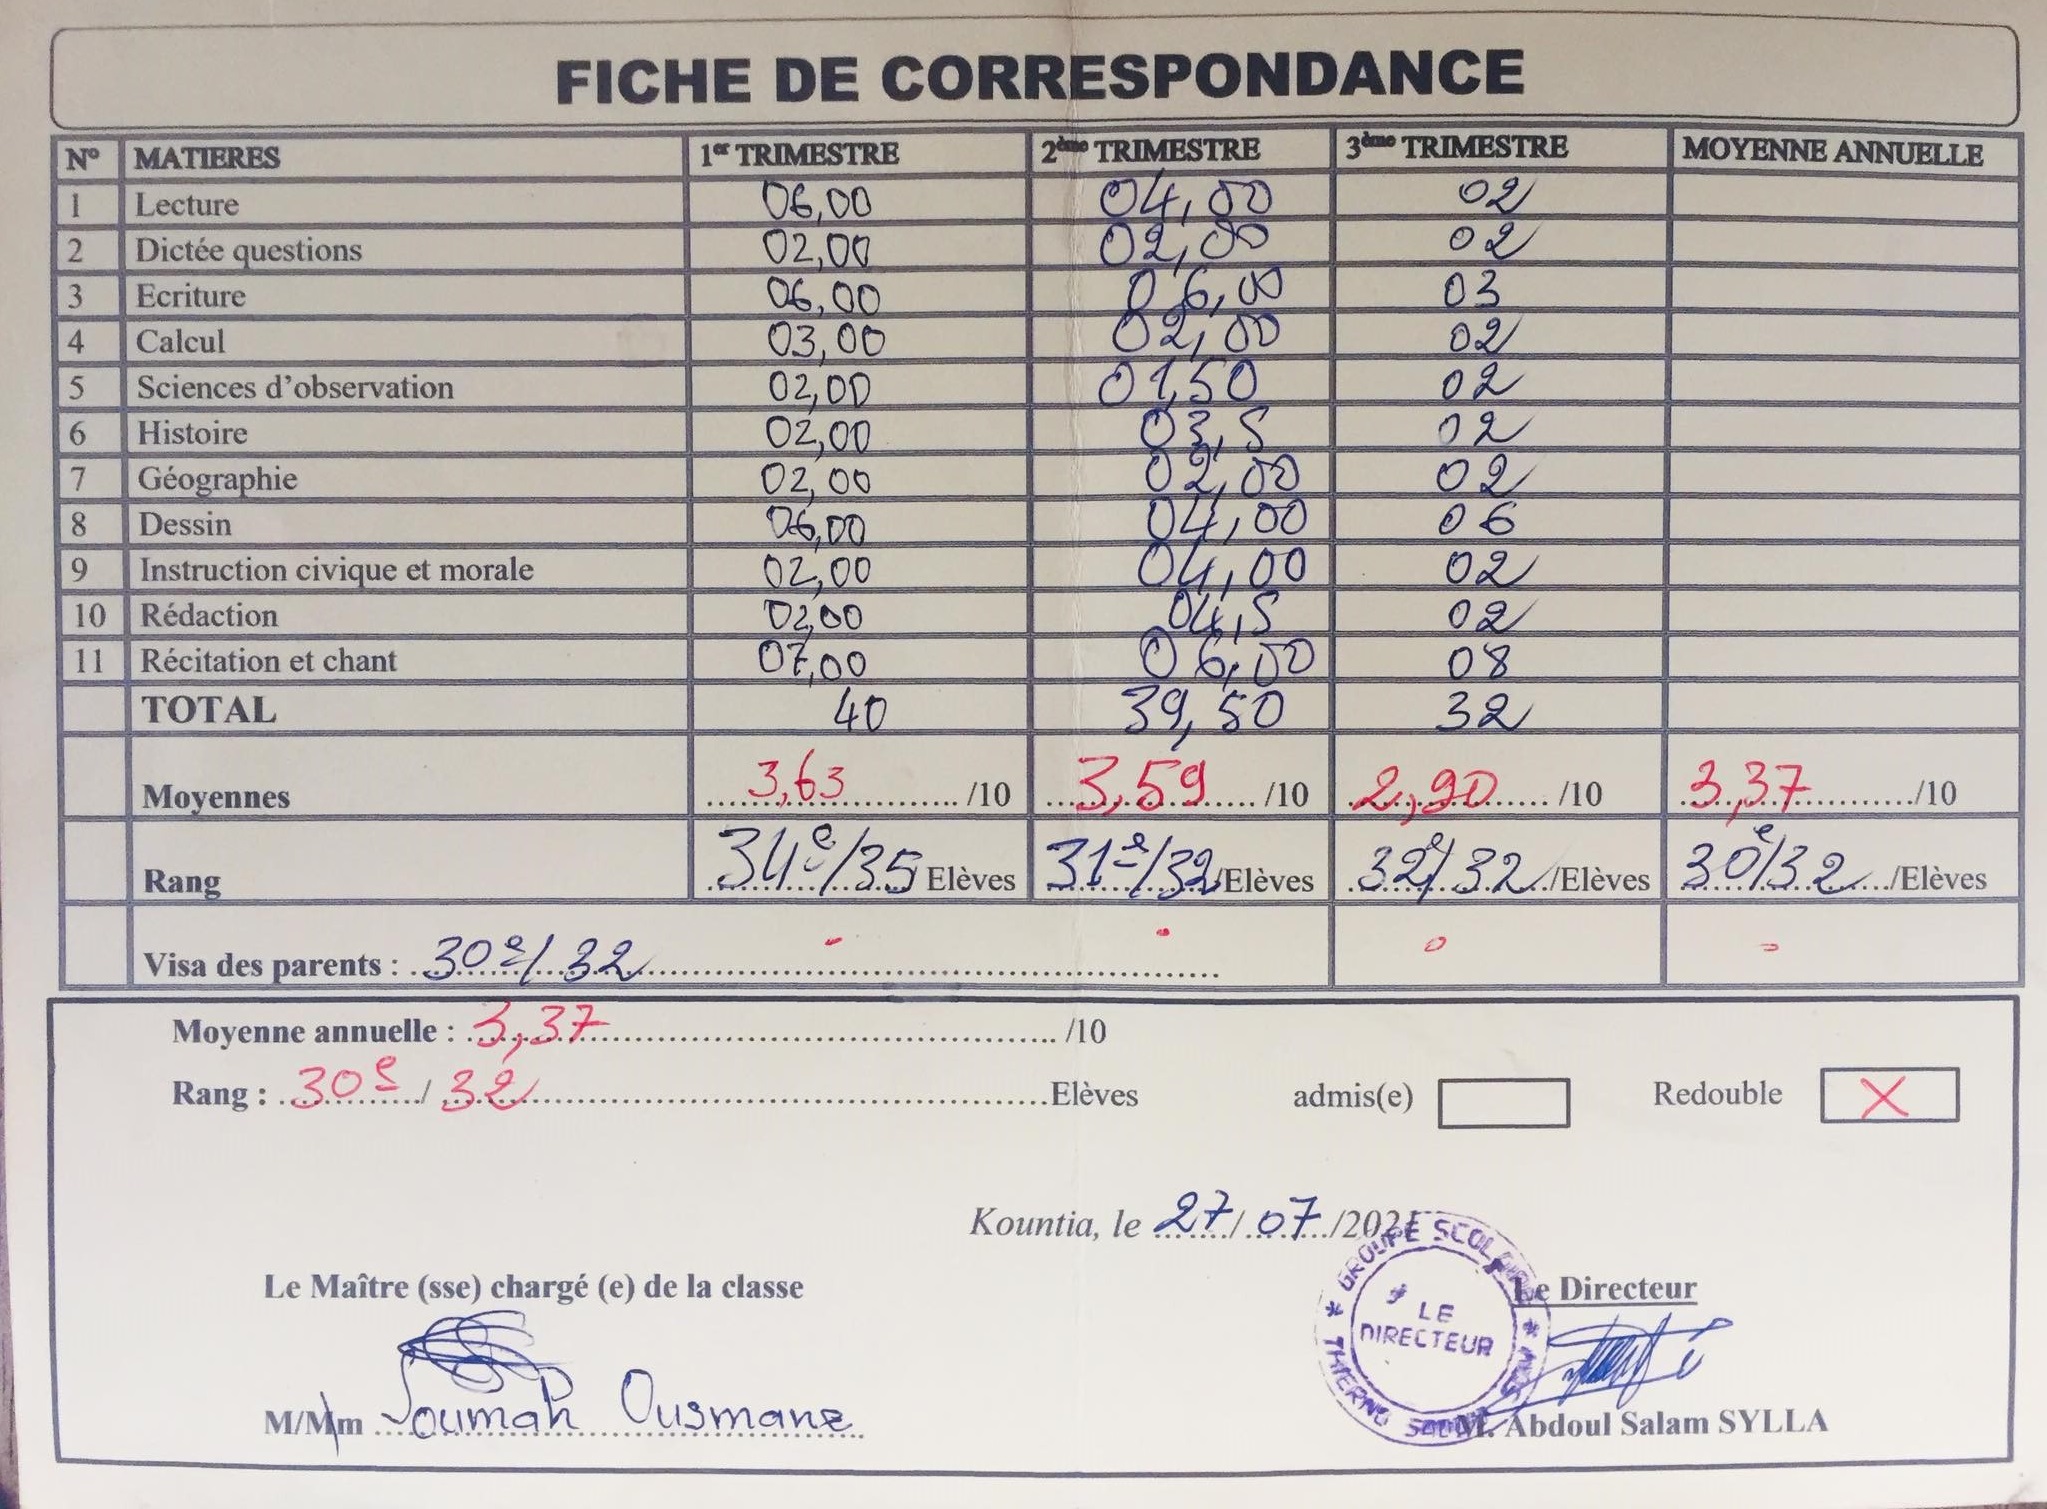 FICHE DE CORRESPONDANCE
N° MATIERES 1er TRIMESTRE 2ème TRIMESTRE 3ème TRIMESTRE MOYENNE ANNUELLE
1 Lecture 06,00 04,00 02
2 Dictée questions 02,00 02,00 02
3 Ecriture 06,00 06,00 03
4 Calcul 03,00 02,00 02
5 Sciences d'observation 02,00 01,50 02
6 Histoire 02,00 03,5 02
7 Géographie 02,00 02,00 02
8 Dessin 06,00 04,00 06
9 Instruction civique et morale 02,00 04,00 02
10 Rédaction 02,00 04,5 02
11 Récitation et chant 07,00 06,00 08
TOTAL 40 39,50 32
Moyennes 3,63 /10 3,59 /10 2,90 /10 3,37 /10
Rang 34e/35 Elèves 31e/32/Elèves 32e/32/Elèves 30e/32/Elèves
Visa des parents : 30e/32
Moyenne annuelle : 3,37 /10
Rang : 30e/32 Elèves admis(e) Redouble X
Kountia, le 27/07/2021
GROUPE SCOLAIRE
THIERNO
LE DIRECTEUR
Le Maître (sse) chargé (e) de la classe Le Directeur
M/Mm Soumah Ousmane M. Abdoul Salam SYLLA